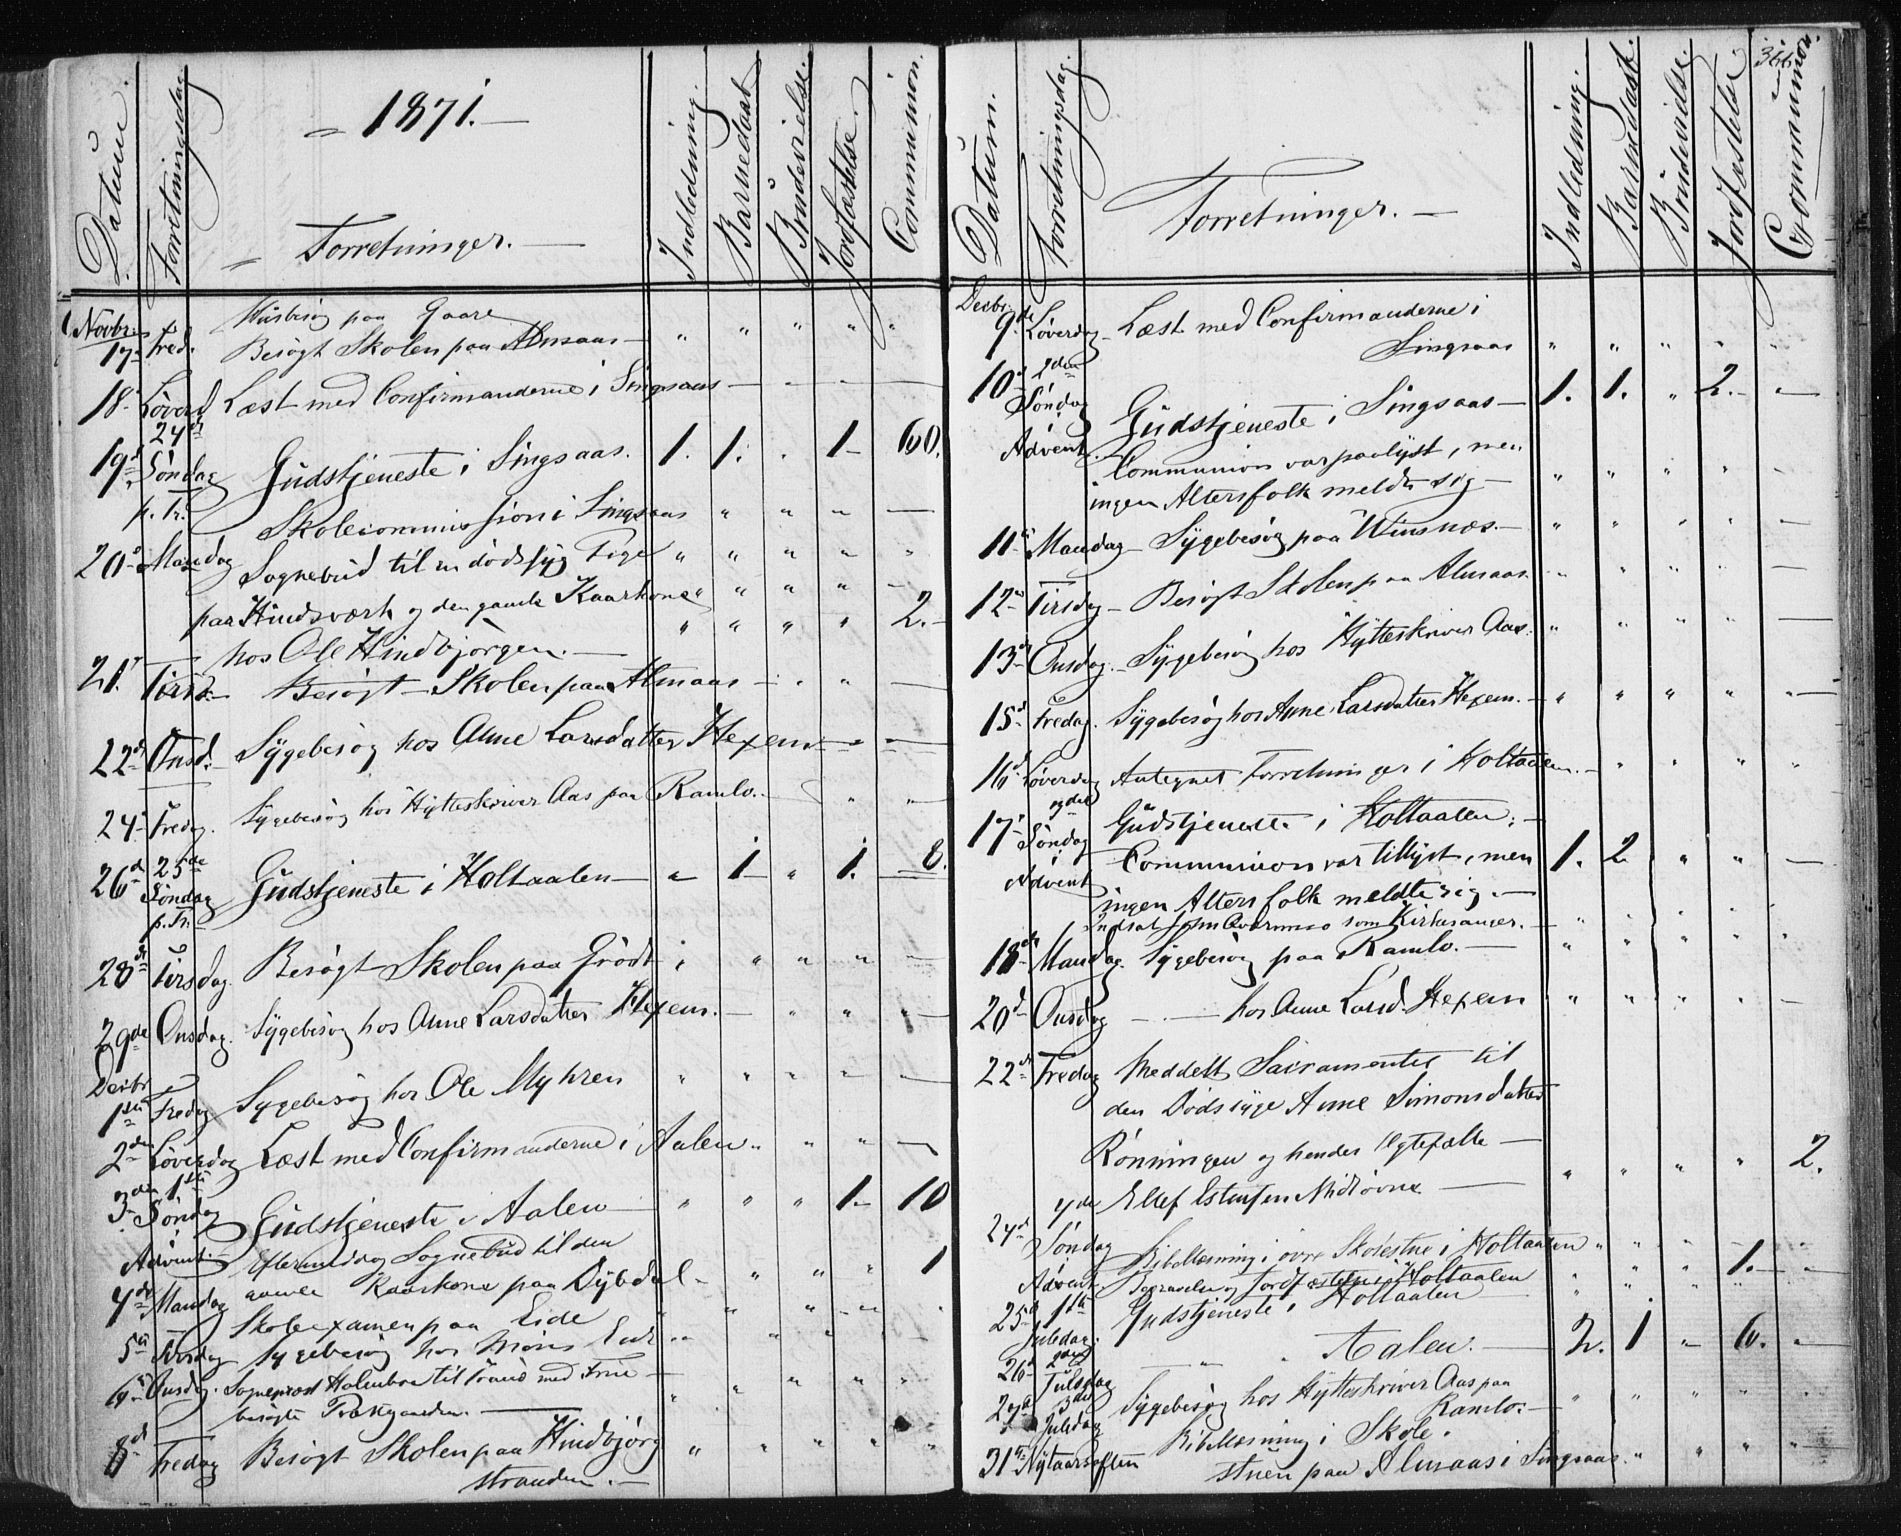 1871.
Datum.
Forretningsdag
Forretninger.
Indledning.
Barnedaab
Brudevielse.
Jordfæstelse.
Communion.
Novbr.
17. Fred. Husbesøg paa Gaare
Besøgt Skolen paa Almaas
18 Løverd Læst med Confirmanderne i Singsaas
19 24de Søndag p. Tr. Gudstjeneste i Singsaas. 1. 1. 1 60.
Skolecommission i Singsaas
20 Mandag Sognebud til en dødssyg Pige
paa Hindsværk og den gamle Kaarkone
hos Ole Hindbjørgen. 2.
21. Tirsd. Besøgt Skolen paa Almaas
22 Onsd. Sygebesøg hos Anne Larsdatter Hexem
24 Fredag. Sygebesøg hos Hytteskriver Aas paa Ramlo.
26de 25de Søndag p. Tr. Gudstjeneste i Holtaalen 1 1. 8.
28de Tirsdag. Besøgt Skolen paa Grødt
29de Onsdag. Sygebesøg hos Anne Larsdatter Hexem.
Decbr
1ste Fredag Sygebesøg hos Ole Myhren
2den Løverdag Læst med Confirmanderne i Aalen
3den 1ste Søndag i Advent Gudstjeneste i Aalen 1. 10
Eftermiddag Sognebud til den
gamle Kaarkone paa Dybdal 1
4de Mandag Skoleexamen paa Eide
5te Tirsdag Sygebesøg hos Møns
6te Onsdag. Sogneprest Holmboe til med Frue
besøgte Præstgaarden.
8de Fredag Besøgt Skolen paa Hindbjørg
stranden.
366
Datum.
Forretningsdag.
Forretninger.
Indledning.
Barnedaab.
Brudevielse.
Jordfæstelse
Communion.
Decbr.
9de Løverdag Læst med Confirmanderne i
Singsaas
10 2den Søndag i Advent. Gudstjeneste i Singsaas 1. 1. 2.
Communion var paalyst, men
ingen Altersfolk meldte sig
11te Mandag Sygebesøg paa Winsnæs.
12te Tirsdag Besøgt Skolen paa Almaas
13de Onsdag. Sygebesøg hos Hytteskriver Aas.
15de Fredag. Sygebesøg hos Anne Larsdatter Hexem.
16de Løverdag Antegnet Forretninger i Holtaalen.
17 3die Søndag i Advent Gudstjeneste i Holtaalen.
Communion var tillyst, men 1. 2
ingen Altersfolk meldte sig.
Indsat John som Kirkesanger.
18de Mandag. Sygebesøg paa Ramlo.
20de Onsdag hos Anne Larsd. Hexem
22de Fredag Meddelt Sacramentet til
den Dødssyge Anne Simonsdatter
Rønningen og hendes Ægtefælle 2.
Ellef Estensen
24de 4de Søndag i Advent. Bibellæsning i øvre Skolestue i Holtaalen
Begravelse og Jordfæstelse i Holtaalen 1.
25de 1ste Juledag. Gudstjeneste i Holtaalen
26de 2den Juledag Aalen. 2. 1 6.
27de 3die Juledag Sygebesøg hos Hytteskriver Aas paa
Ramlo.
31te Nytaarsaften Bibellæsning i Skole.
stuen paa Almaas i Singsaas.